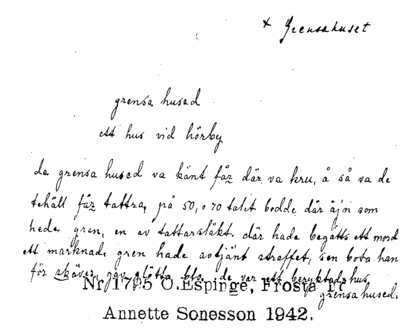 x Grensahuset
grensa hused
ett hus vid hörby
de grensa hused va känt får där va kru, å så va de
tehåll får tattra, på 50, o 70 talet bodde där äjn som
hede gren, en av tattarsläkt. där hade begåtts ett mord
ett marknad. gren hade avtjänt straffet, sen boba han
för de var ett beryktads hus,
grensa hused.
Nr 1795 Ö.Espinge, Frosta
Annette Sonesson 1942.